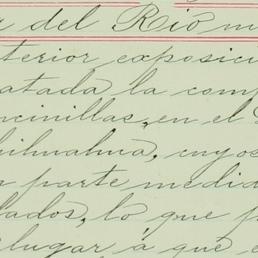 r del Rio m
terior exposici
atada la comp
ncinillas, en el
hihuahua, cuyos
n parte medid
lados, lo que p
lugar á que e